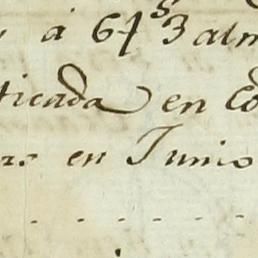 á 64 3 alm
ticada en Co
en Junio